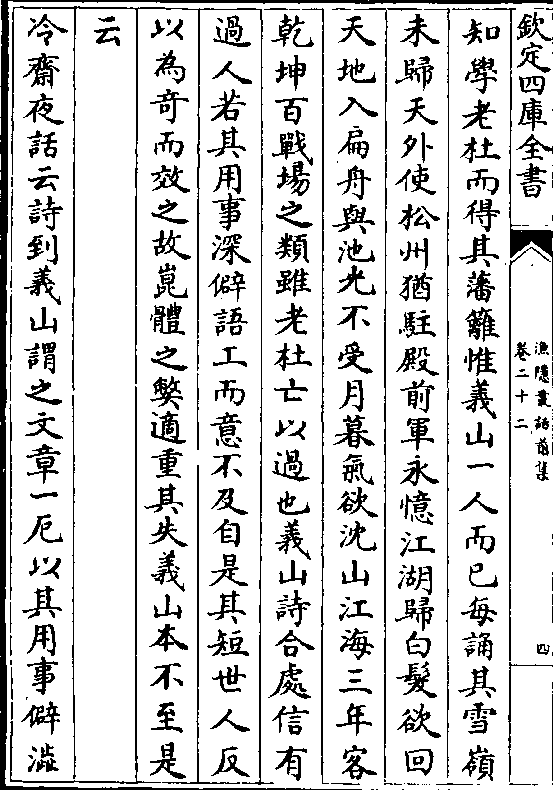 欽定四庫全書
漁隱叢話前集
卷二十二
四
知學老杜而得其藩籬惟義山一人而已每誦其雪嶺
未歸天外使松州猶駐殿前軍永憶江湖歸白髮欲回
天地入扁舟與池光不受月暮氣欲沈山江海三年客
乾坤百戰場之類雖老杜亡以過也義山詩合處信有
過人若其用事深僻語工而意不及自是其短世人反
以為奇而效之故崑體之弊適重其失義山本不至是
云
冷齋夜話云詩到義山謂之文章一厄以其用事僻澁